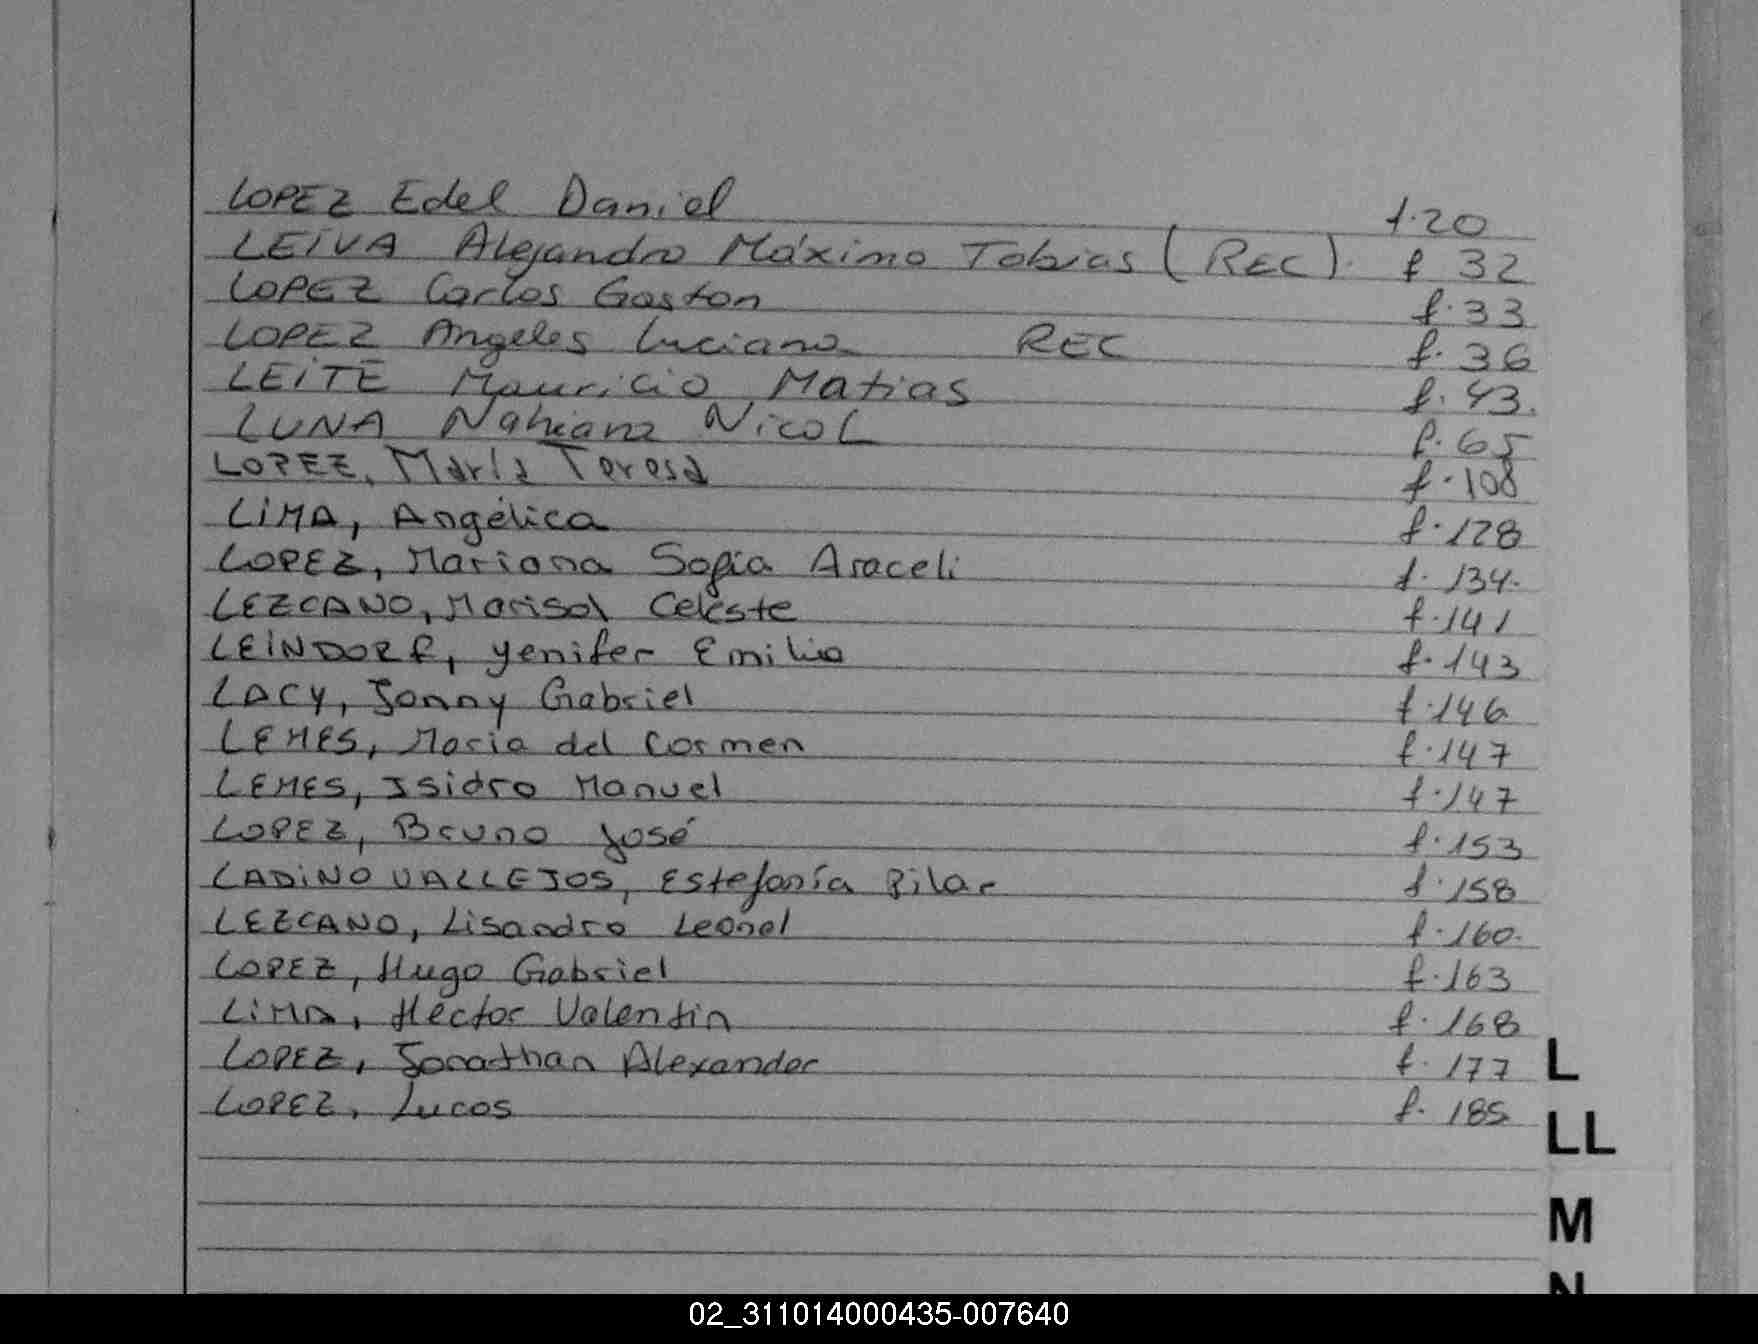 LOPEZ Edel Daniel f.20
LEIVA Alejandro Máximo Tobias (REC). f 32
LOPEZ Carlos Gaston f.33
LOPEZ Angeles Luciana REC f. 36
LEITE Mauricio Matias f. 43.
LUNA Nahiara Nicol f. 65
LOPEZ, María Teresa f.108
LIMA, Angélica f.128
LOPEZ, Mariana Sofia Araceli f. 134.
LEZCANO, Marisol Celeste f.141
LEINDORF, yenifer Emilia f.143
LACY, Jonny Gabriel f.146
LEMES, Maria del Carmen f.147
LEMES, Isidro Manuel f.147
LOPEZ, Bruno José f.153
LADINO VALLEJOS, Estefanía Pilar f.158
LEZCANO, Lisandro Leonel f.160.
LOPEZ, Hugo Gabriel f.163
LIMA, Héctor Valentin f.168
LOPEZ, Jonathan Alexander f. 177
LOPEZ, Lucas f. 185
L
LL
M
N
02_311014000435-007640